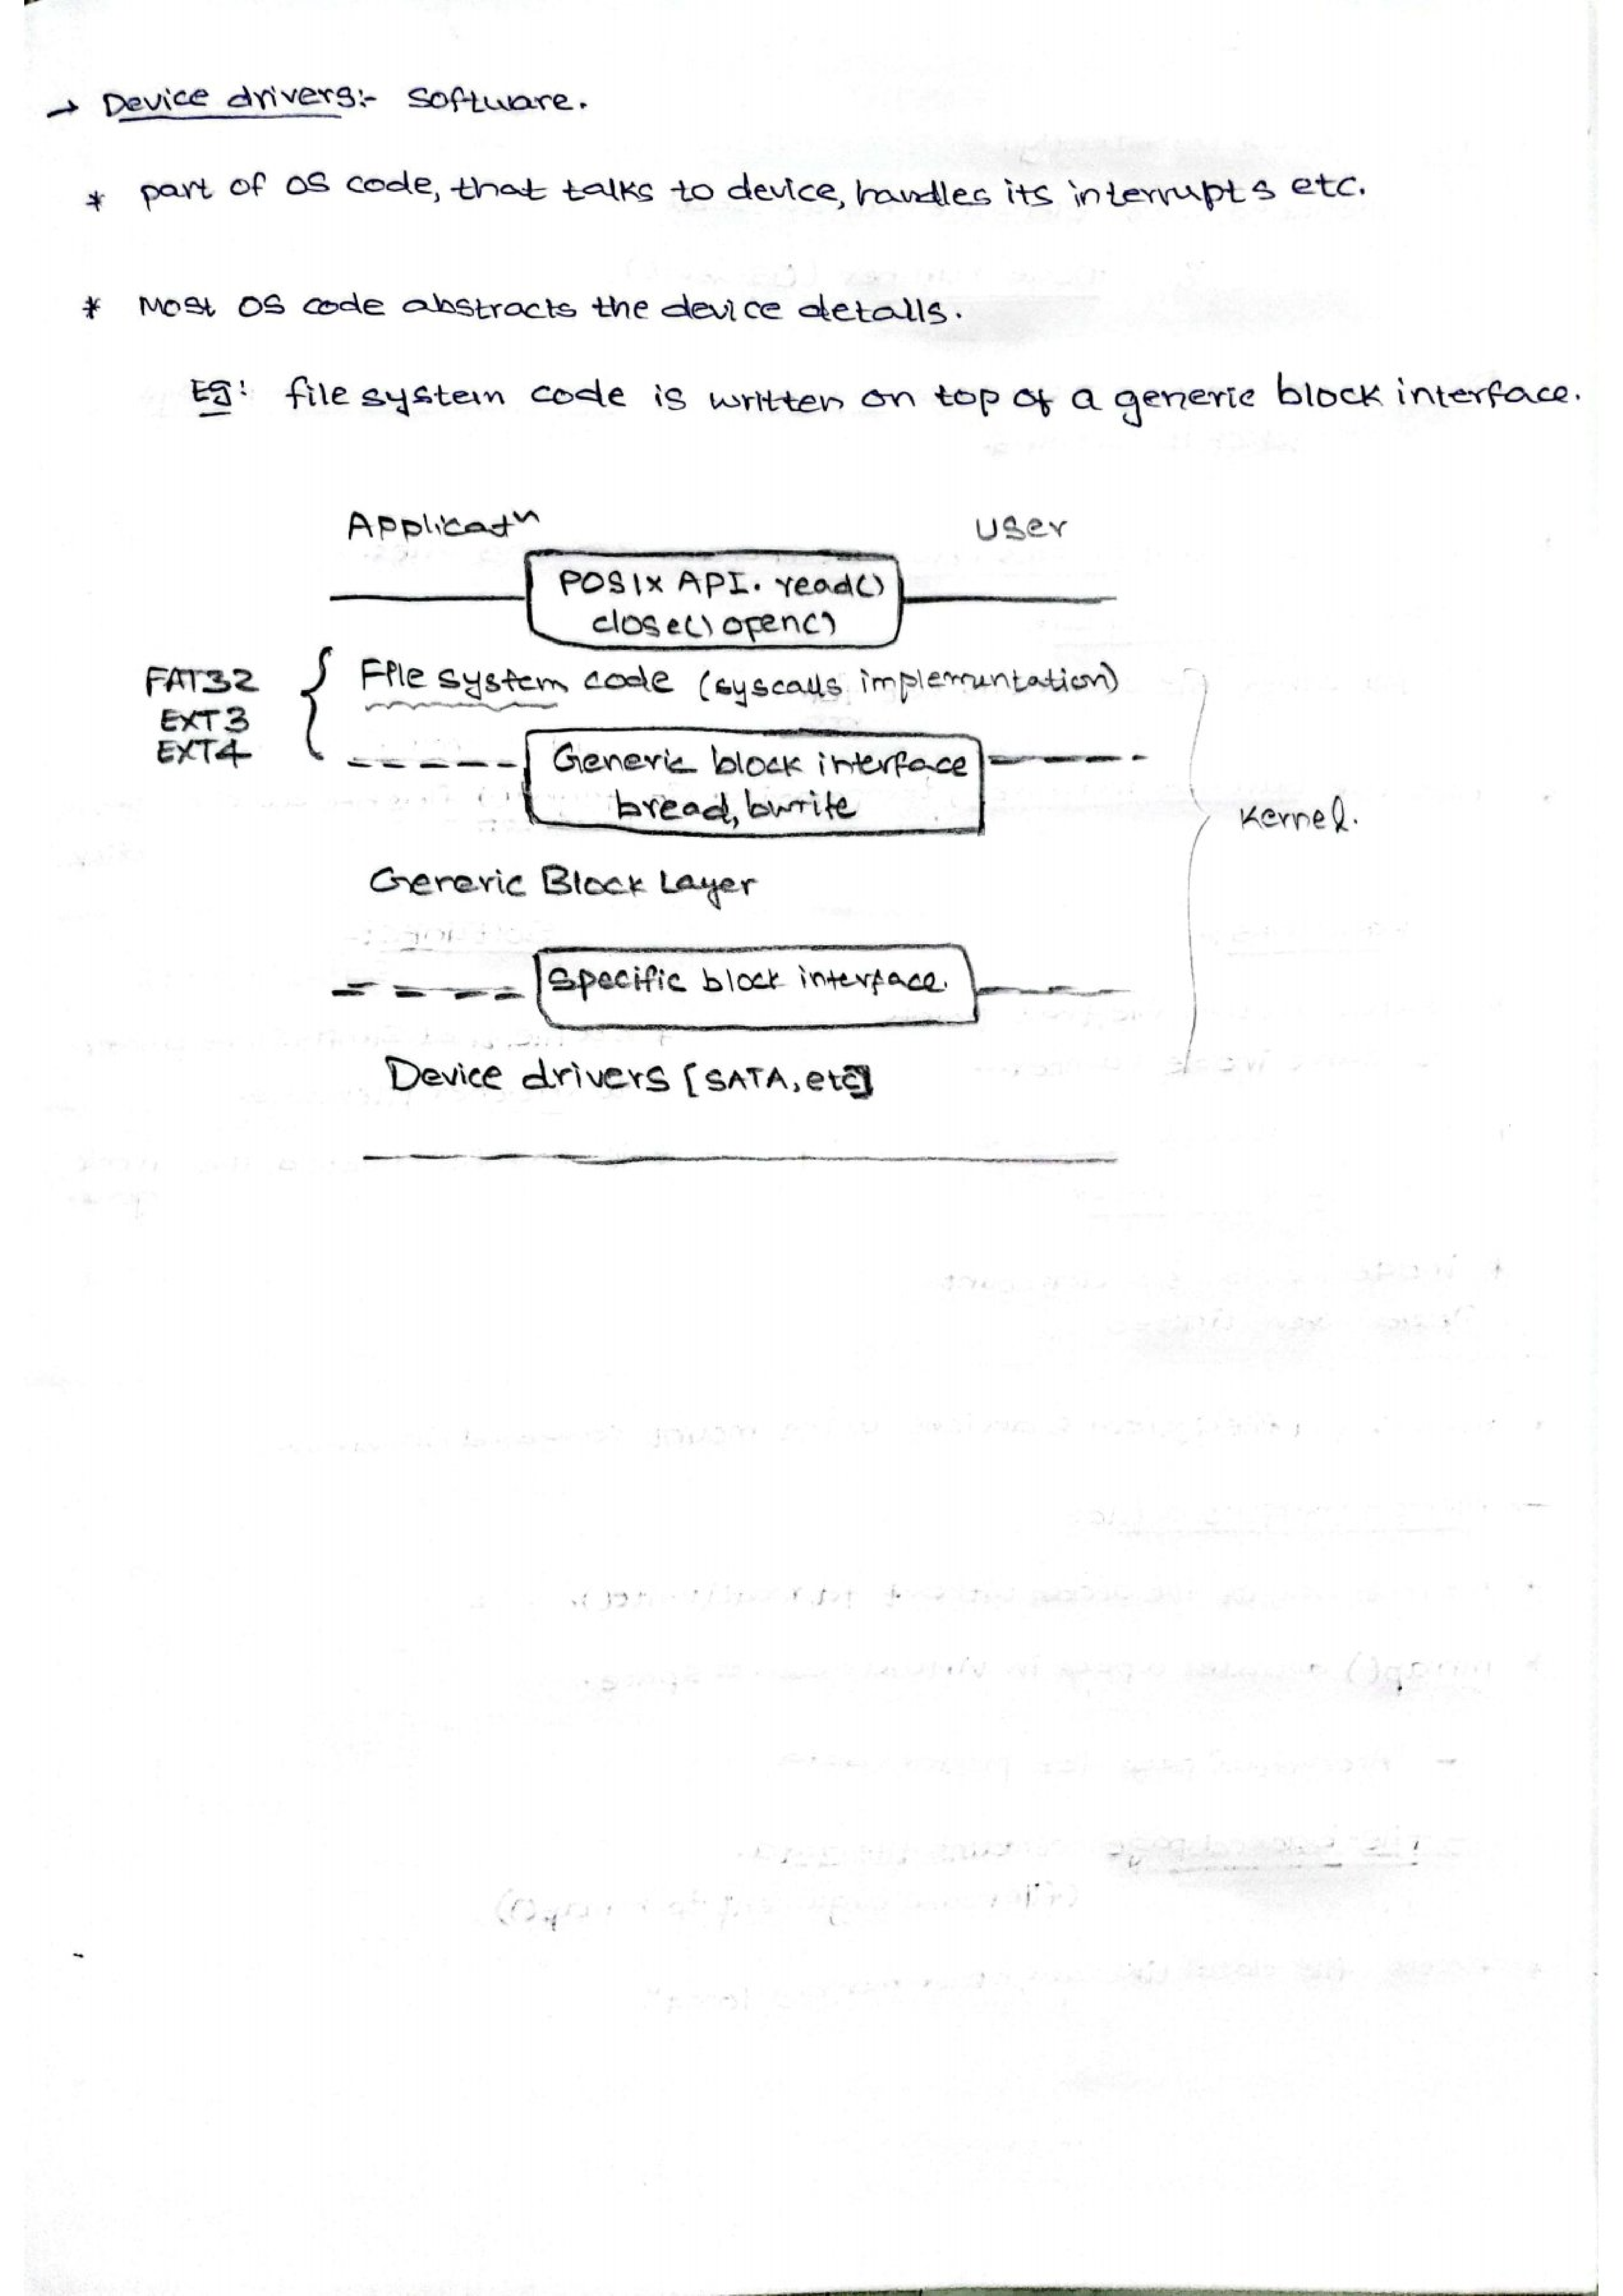 → Device drivers:- Software.
* part of OS code, that talks to device, handles its interrupts etc.
* Most OS code abstracts the device details.
Eg: file system code is written on top of a generic block interface.
Applicatⁿ User
POSIX API. read()
close() open()
FAT32 { File system code (syscalls implementation)
EXT3
EXT4
Generic block interface
bread, bwrite
Kernel.
Generic Block Layer
Specific block interface.
Device drivers [SATA, etc]